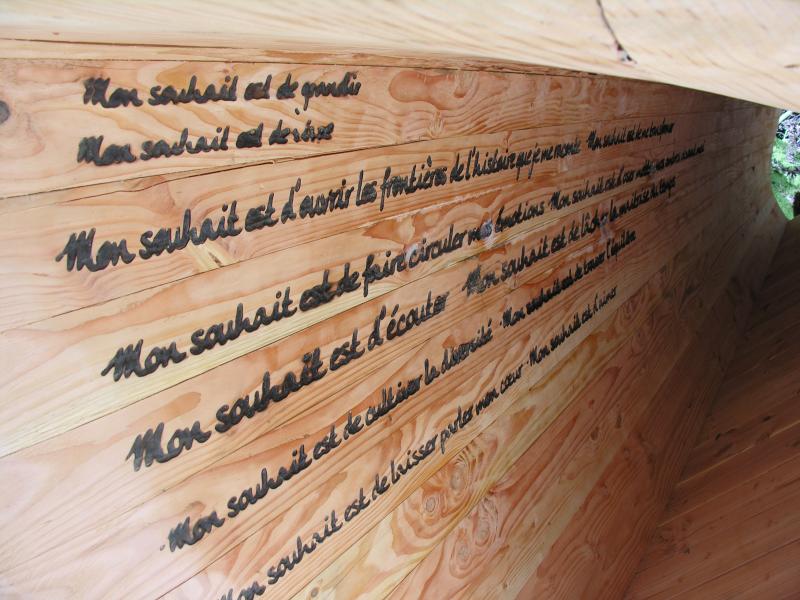 Mon souhait est de grandir
Mon souhait est de rêve
Mon souhait est d'ouvrir les frontières de l'histoire que je me raconte Mon souhait est de me
Mon souhait est de faire circuler mes émotions Mon souhait est d'oser
Mon souhait est d'écouter Mon souhait est de lâcher la maîtrise du temps
Mon souhait est de cultiver la diversité Mon souhait est de trouver l'équilibre
Mon souhait est de laisser parler mon cœur Mon souhait est d'aimer